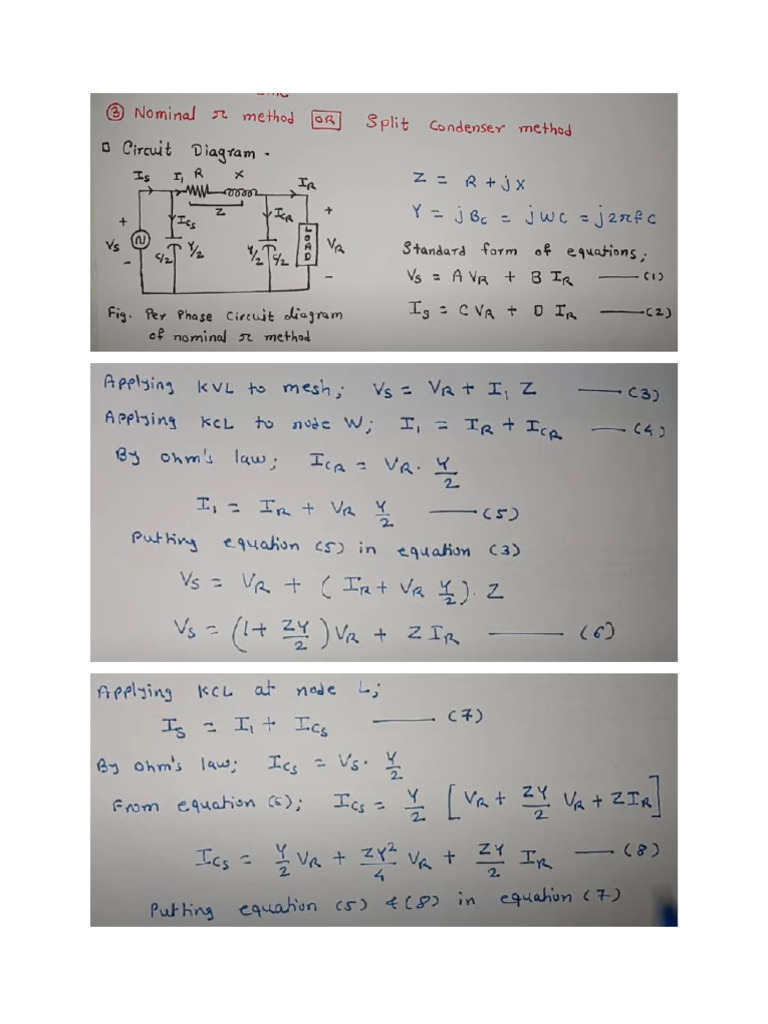 ③ Nominal π method OR Split Condenser method
□ Circuit Diagram -
IS I1 R X IR
Z
+ ICS ICR +
VS C/2 Y/2 Y/2 C/2 LOAD VR
- -
Fig. Per Phase Circuit diagram
of nominal π method
Z = R + jX
Y = jBC = jWC = j2πfC
Standard form of equations;
VS = A VR + B IR —— (1)
IS = C VR + D IR —— (2)
Applying KVL to mesh; VS = VR + I1 Z —— (3)
Applying KCL to node W; I1 = IR + ICR —— (4)
By ohm's law; ICR = VR . Y/2
I1 = IR + VR Y/2 —— (5)
Putting equation (5) in equation (3)
VS = VR + (IR + VR Y/2). Z
VS = (1 + ZY/2) VR + Z IR —— (6)
Applying KCL at node L;
IS = I1 + ICS —— (7)
By ohm's law; ICS = VS . Y/2
From equation (6); ICS = Y/2 [VR + ZY/2 VR + ZIR]
ICS = Y/2 VR + ZY²/4 VR + ZY/2 IR —— (8)
Putting equation (5) & (8) in equation (7)